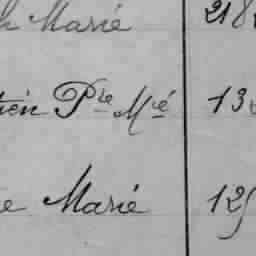 h Marié 218
tien Pre Mié 13
e Marié 125